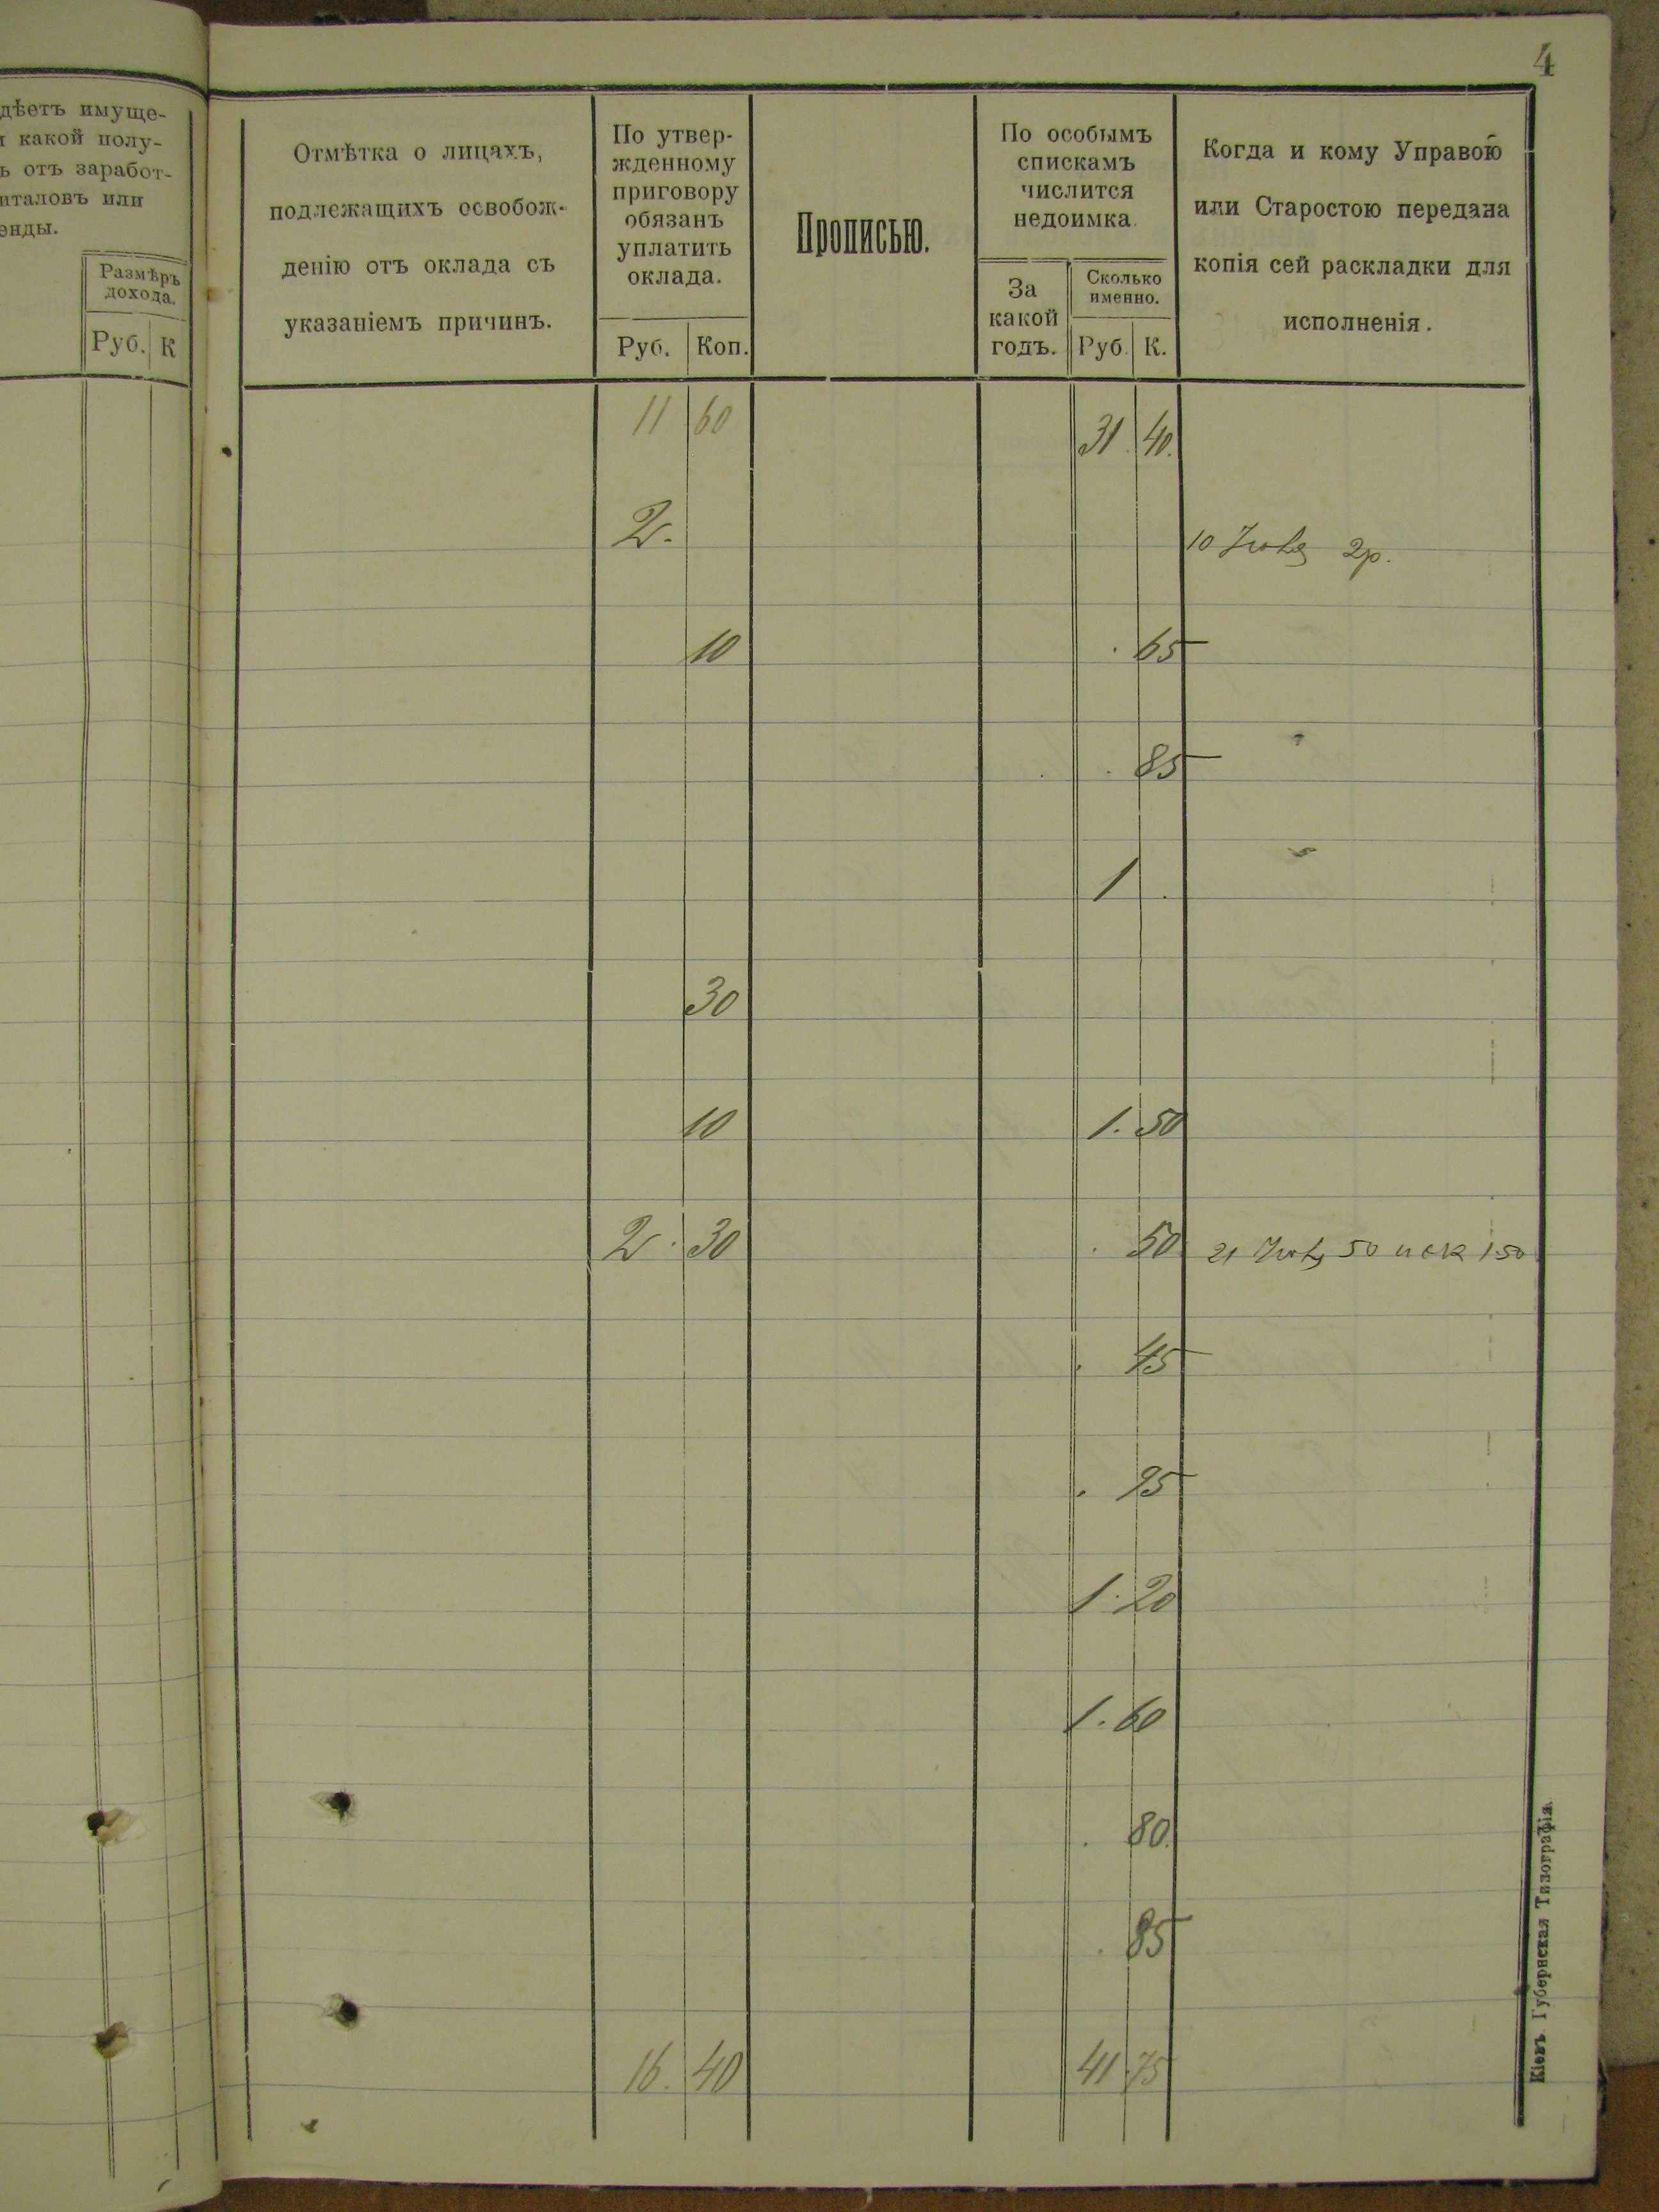 4
дѣетъ имуще-
и какой полу-
ь отъ заработ-
италовъ или
энды.
Размѣръ
дохода.
Руб. К
Отмѣтка о лицахъ,
подлежащихъ освобож-
денію отъ оклада съ
указаніемъ причинъ.
По утвер-
жденному
приговору
обязанъ
уплатить
оклада.
Руб. Коп.
Прописью.
По особымъ
спискамъ
числится
недоимка.
За
какой
годъ.
Сколько
именно.
Руб. К.
Когда и кому Управою
или Старостою передана
копія сей раскладки для
исполненія.
11 60 31. 40.
2. 10 2р.
10 . 65
. 85
1 .
30
10 1. 50
2. 30 . 50 21 50 1-50
. 45
. 95
1. 20
1. 60
. 80.
. 85
16. 40 41. 75
Кіевъ. Губернская Типографія.